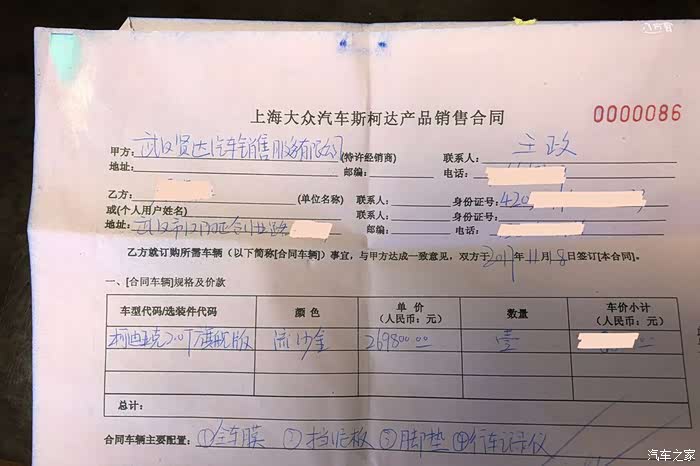 上海大众汽车斯柯达产品销售合同
0000086
甲方：武汉贤达汽车销售服务有限公司 (特许经销商) 联系人：王政
地址： 邮编： 电话：
乙方： (单位名称) 联系人： 身份证号：420
或(个人用户姓名) 联系人： 身份证号：
地址：武汉市江汉区合作路 邮编： 电话：
乙方就订购所需车辆（以下简称[合同车辆]）事宜，与甲方达成一致意见，双方于2017年11月18日签订[本合同]。
一、[合同车辆]规格及价款
车型代码/选装件代码 颜色 单价（人民币：元） 数量 车价小计（人民币：元）
柯迪亚克2.0T旗舰版 流沙金 269800.00 壹
总计：
合同车辆主要配置：①全车膜 ②挡泥板 ③脚垫 ④行车记录仪
汽车之家